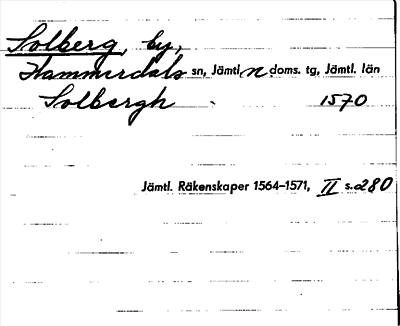 Solberg, by,
Hammerdals sn, Jämtl. n doms. tg, Jämtl. län
Solbergh 1570
Jämtl. Räkenskaper 1564–1571, II s. 280